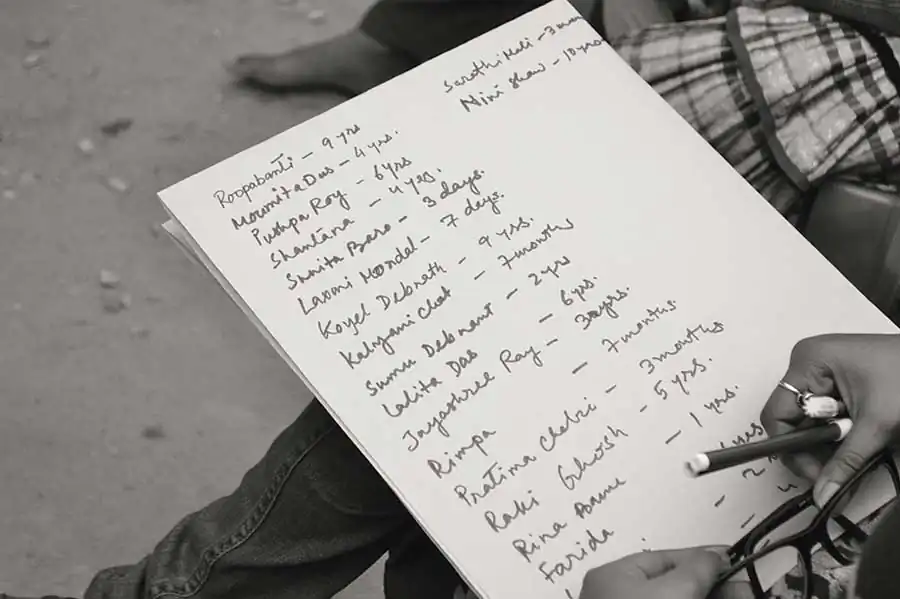 Roopabanti - 9 yrs
Moumita Das - 4 yrs.
Pushpa Roy - 6 yrs
Shantana - 4 yrs.
Sunita Baro - 3 days.
Laxmi Mondal - 7 days.
Koyel Debnath - 9 yrs.
Kalyani Chat - 7 months
Sumu Debnant - 2 yrs
Lalita Das - 6 yrs.
Jayashree Ray - 3 yrs.
Rimpa - 7 months.
Pratima Chetri - 3 months
Raki Ghosh - 5 yrs.
Rina - 1 yrs.
Farida
Sarathi Mali - 3
Mini Shaw - 10 yrs